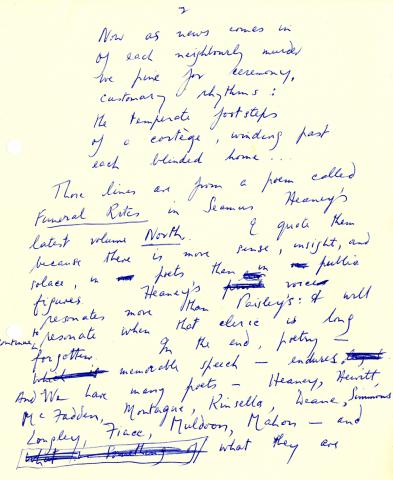 2
Now as news comes in
of each neighbourly murder
we pine for ceremony,
customary rhythms:
the temperate footsteps
of a cortège, winding past
each blinded home...
Those lines are from a poem called
Funeral Rites in Seamus Heaney's
latest volume North. I quote them
because there is more sense, insight, and
solace, in poets than in public
figures. Heaney's voice
resonates more than Paisley's: it will
continue to resonate when that cleric is long
forgotten. In the end, poetry –
memorable speech – endures.
And we have many poets – Heaney, Hewitt,
McFadden, Montague, Kinsella, Deane, Simmons
Longley, Fiacc, Muldoon, Mahon – and
what they are